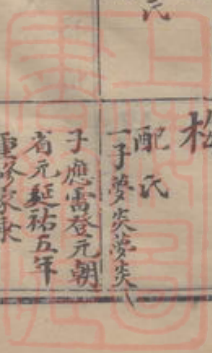 氏
松
配氏
一子夢炎夢炎
子應雷登元朝
省元延祐五年
重修家乘